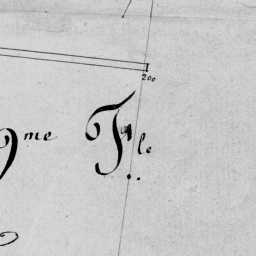 200
9me Fle